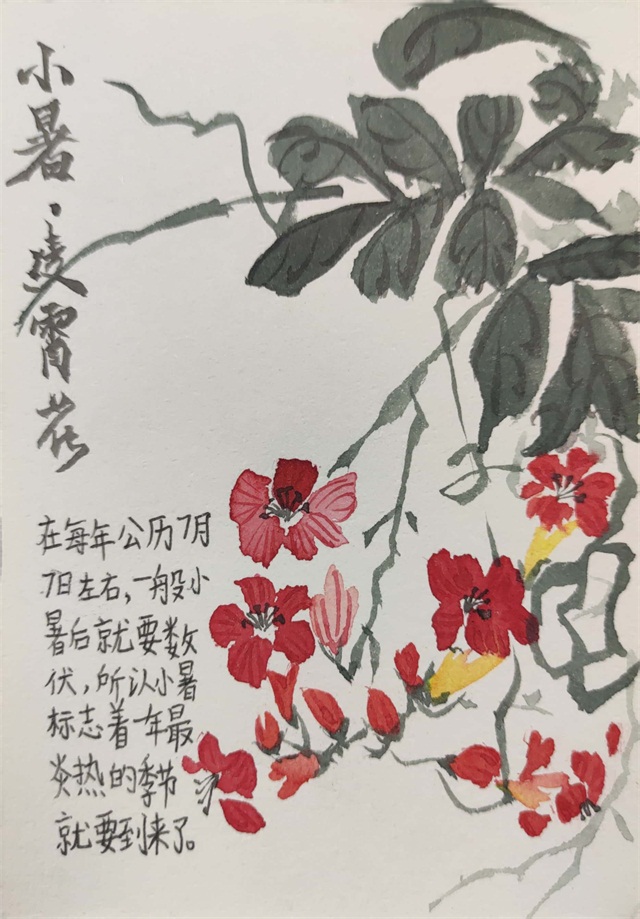 小暑·凌霄花
在每年公历7月
7日左右,一般小
暑后就要数
伏,所认小暑
标志着一年最
炎热的季节
就要到来了。